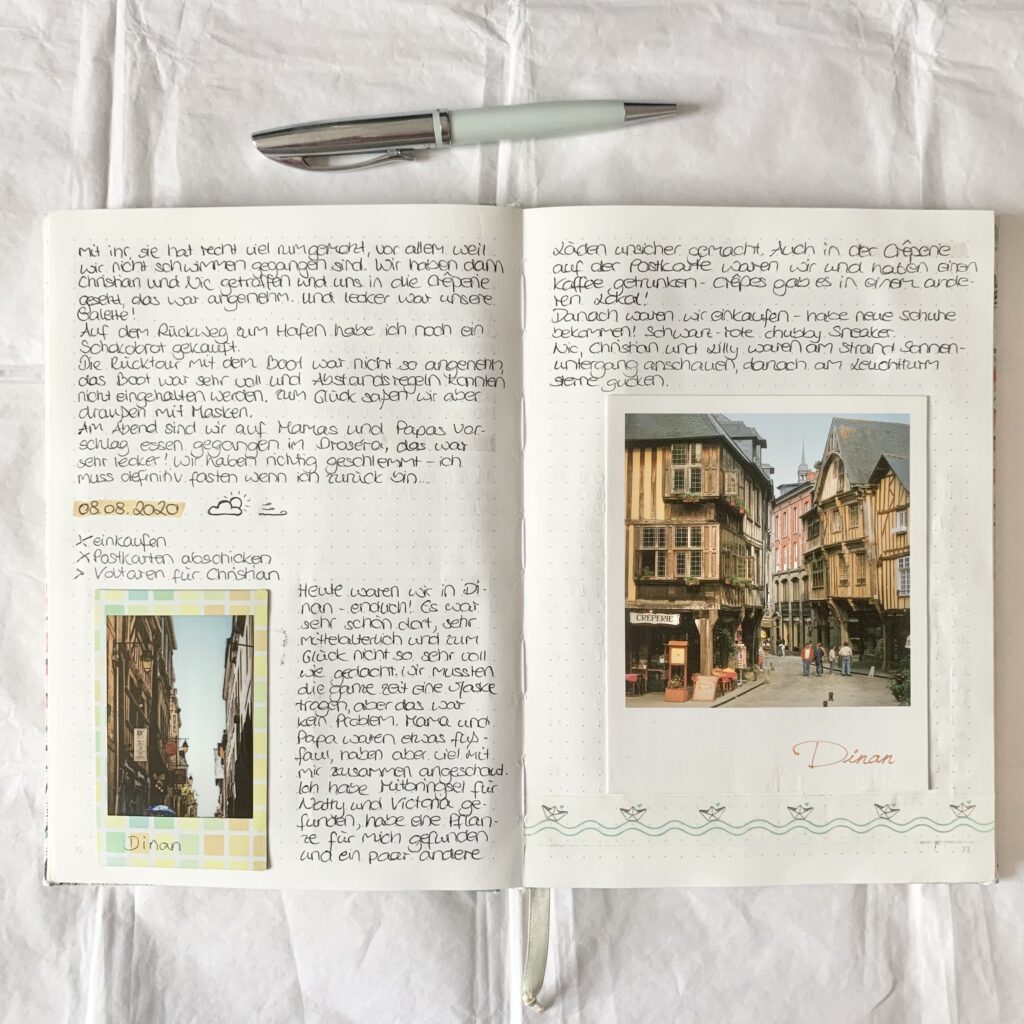 Mit ihr, sie hat recht viel rumgemotzt, vor allem weil
wir nicht schwimmen gegangen sind. Wir haben dann
Christian und Nic getroffen und uns in die Crêperie
gesetzt, das war angenehm. Und lecker war unsere
Galette!
Auf dem Rückweg zum Hafen habe ich noch ein
Schokobrot gekauft.
Die Rücktour mit dem Boot war nicht so angenehm,
das Boot war sehr voll und Abstandsregeln konnten
nicht eingehalten werden. Zum Glück saßen wir aber
draußen mit Masken.
Am Abend sind wir auf Mamas und Papas Vor-
schlag essen gegangen im Drosera, das war
sehr lecker! Wir haben richtig geschlemmt - ich
muss definitiv fasten wenn ich zurück bin...
08.08.2020
x einkaufen
x Postkarten abschicken
> Voltaren für Christian
Heute waren wir in Di-
nan - endlich! Es war
sehr schön dort, sehr
mittelalterlich und zum
Glück nicht so sehr voll
wie gedacht. Wir mussten
die ganze Zeit eine Maske
tragen, aber das war
kein Problem. Mama und
Papa waren etwas fuß-
faul, haben aber viel mit
mir zusammen angeschaut.
Ich habe Mitbringsel für
Natty und Victoria ge-
funden, habe eine Pflan-
ze für mich gefunden
und ein paar andere
Dinan
72
Läden unsicher gemacht. Auch in der Crêperie
auf der Postkarte waren wir und haben einen
Kaffee getrunken - Crêpes gab es in einem ande-
ren Lokal!
Danach waren wir einkaufen - habe neue Schuhe
bekommen! Schwarz-rote chubby Sneaker.
Nic, Christian und Lilly waren am Strand Sonnen-
untergang anschauen, danach am Leuchtturm
Sterne gucken.
CRÊPERIE
Dinan
73